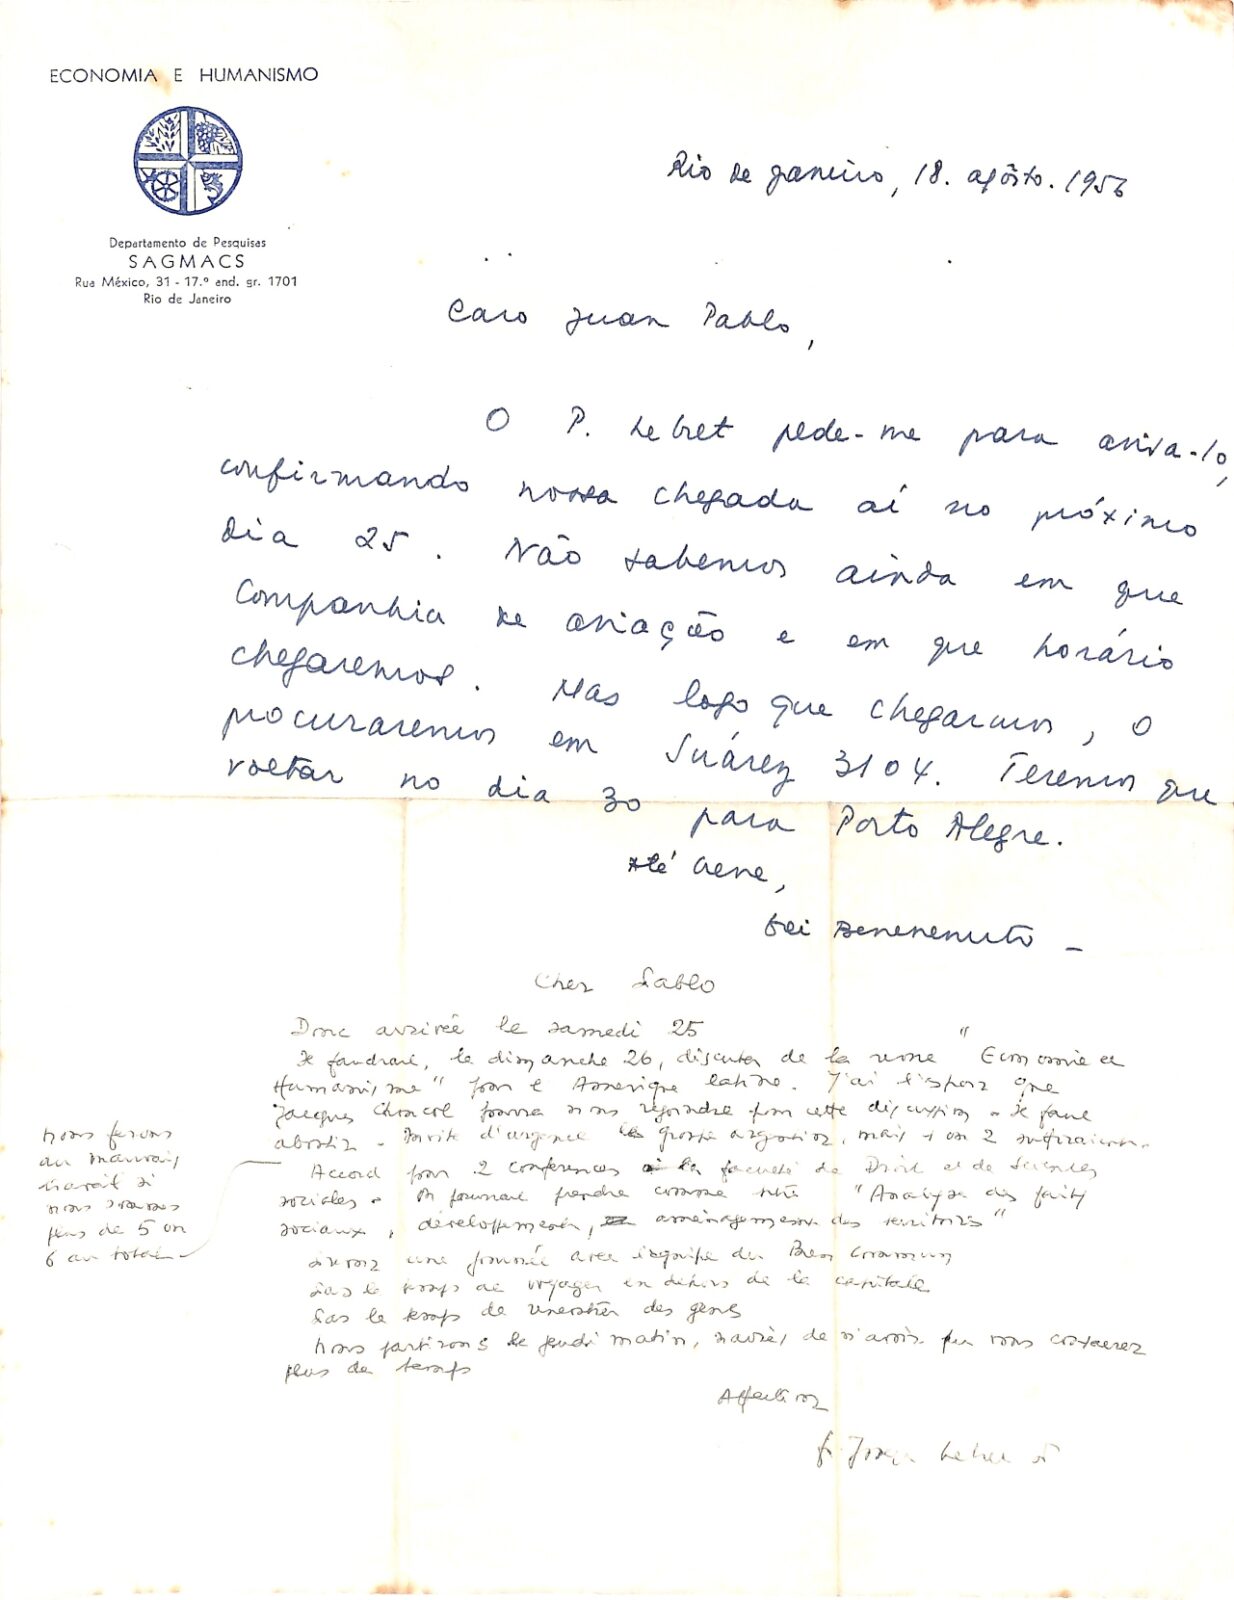 ECONOMIA E HUMANISMO
Departamento de Pesquisas
SAGMACS
Rua México, 31 - 17.º and. gr. 1701
Rio de Janeiro
Rio de Janeiro, 18. agôsto. 1956
Caro Juan Pablo,
O P. Lebret pede-me para avisa-lo,
confirmando nossa chegada aí no próximo
dia 25. Não sabemos ainda em que
Companhia de aviação e em que horário
chegaremos. Mas logo que chegarmos, o
procuraremos em Suárez 3104. Teremos que
voltar no dia 30 para Porto Alegre.
Até breve,
frei Benevenuto
Cher Pablo
Donc arrivée le samedi 25
Il faudrait, le dimanche 26, discuter de la revue "Economie et
Humanisme" pour l'Amérique latine. J'ai l'espoir que
Jacques Chonchol pourra nous rejoindre pour cette discussion. Il faut
aboutir. d'urgence le groupe argentin, mais 1 ou 2 suffiraient.
nous ferons
du mauvais
travail si
nous sommes
plus de 5 ou
6 au total
Accord pour 2 conférences à la faculté de Droit et de Sciences
sociales. On pourrait prendre comme titre "Analyse des faits
sociaux, développement, aménagement des territoires"
une journée avec l'équipe du Bien Commun
Pas le temps de voyager en dehors de la capitale
Pas le temps de des gens
Nous partirons le jeudi matin, navrés de n'avoir pu vous consacrer
plus de temps
Affection
f. Lebret